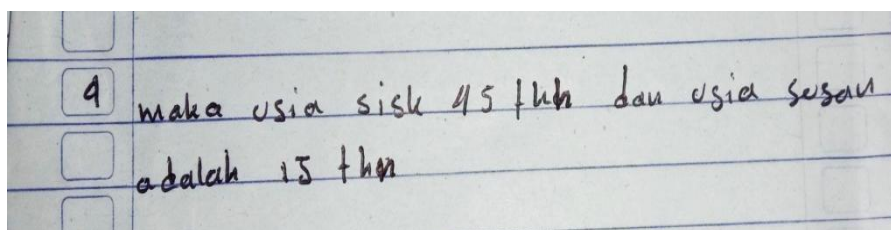 4 maka usia sisk 45 thn dan usia susan
adalah 15 thn